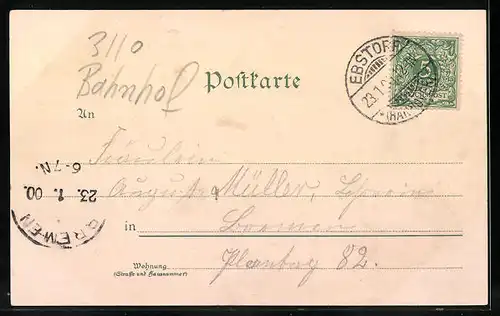 3110
Bahnhof
Postkarte
EBSTORF
23.1.0
* (HANNOVER)
5
An
Fräulein
Auguste Müller,
in Bremen
Wohnung
(Straße und Hausnummer)
82.
BREMEN
23. 1. 00.
6-7N.